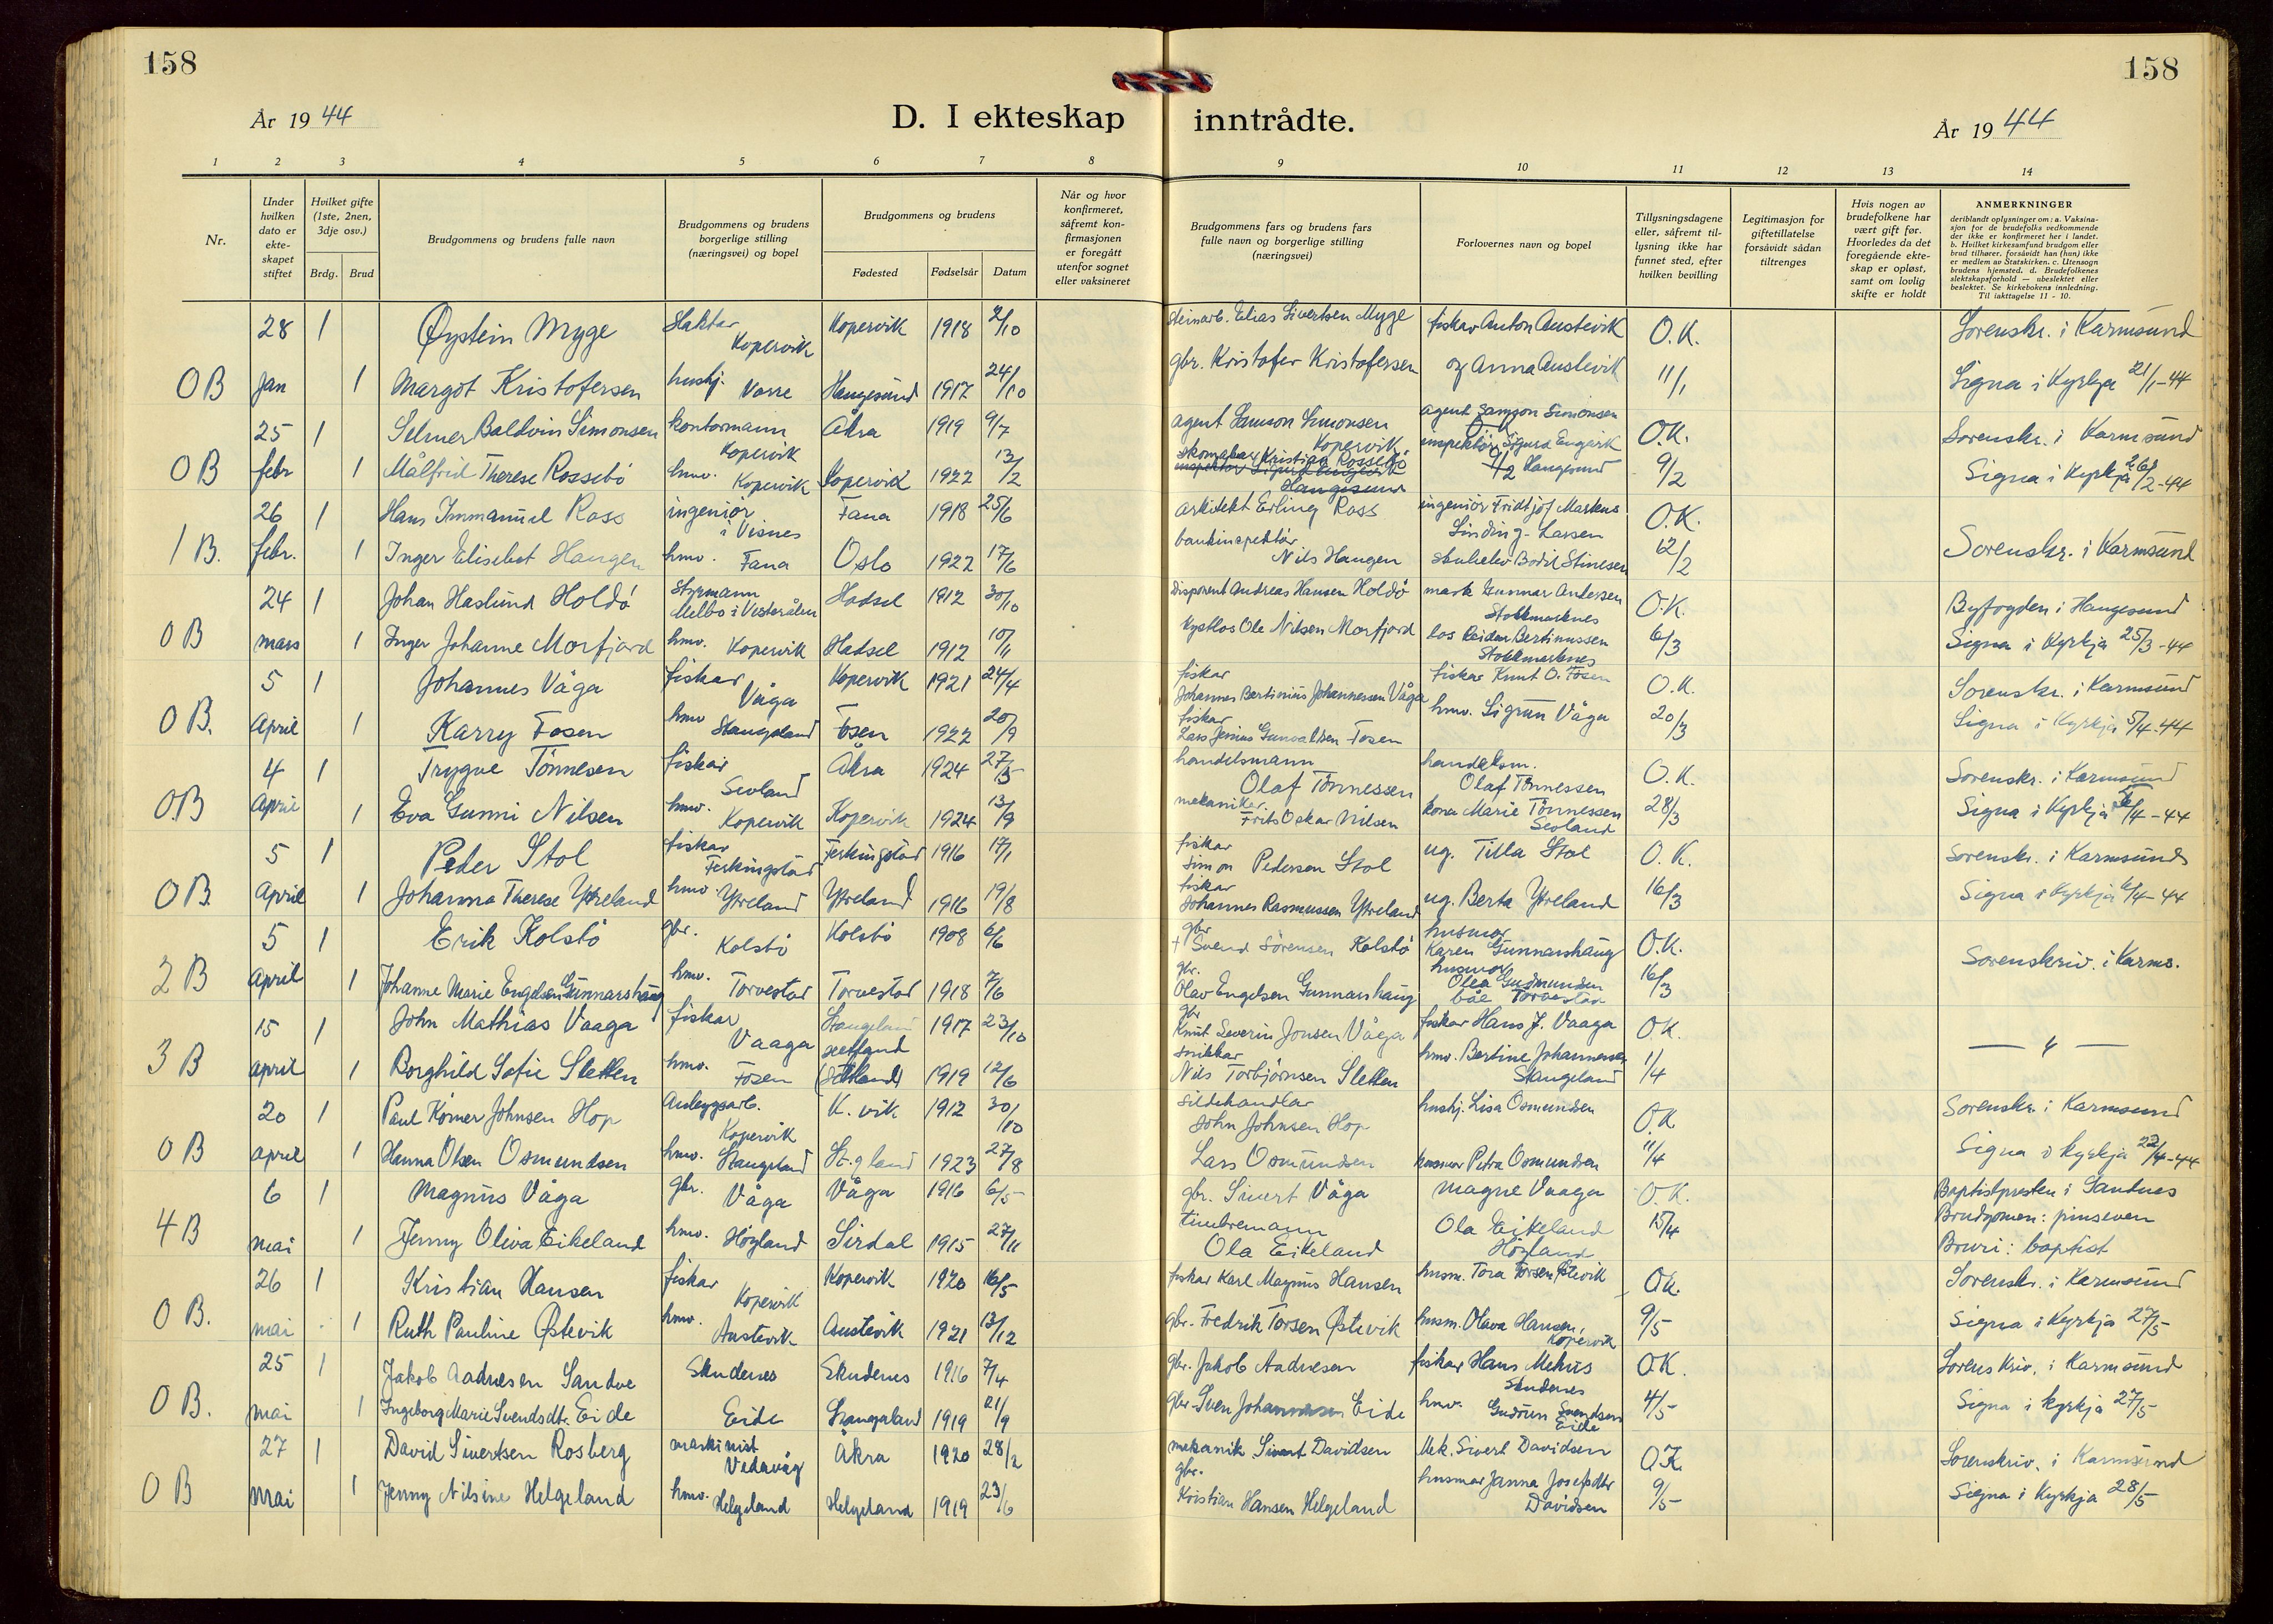 158
158
År 1944
D. I ekteskap inntrådte.
År 1944
1 2 3 4 5 6 7 8 9 10 11 12 13 14
Nr.
Under hvilken dato er ekte-skapet stiftet
Hvilket gifte (1ste, 2nen, 3dje osv.)
Brdg. Brud
Brudgommens og brudens fulle navn
Brudgommens og brudens borgerlige stilling (næringsvei) og bopel
Brudgommens og brudens
Fødested Fødselsår Datum
Når og hvor konfirmeret, såfremt kon-firmasjonen er foregått utenfor sognet eller vaksineret
Brudgommens fars og brudens fars fulle navn og borgerlige stilling (næringsvei)
Forlovernes navn og bopel
Tillysningsdagene eller, såfremt til-lysning ikke har funnet sted, efter hvilken bevilling
Legitimasjon for giftetillatelse forsåvidt sådan tiltrenges
Hvis nogen av brudefolkene har vært gift før. Hvorledes da det foregående ekte-skap er opløst, samt om lovlig skifte er holdt
ANMERKNINGER
deriblandt oplysninger om: a. Vaksina-sjon for de brudefolks vedkommende der ikke er konfirmeret her i landet. b. Hvilket kirkesamfund brudgom eller brud tilhører, forsåvidt han (hun) ikke er medlem av Statskirken. c. Utensogn brudens hjemsted. d. Brudefolkenes slektskapsforhold — ubeslektet eller beslektet. Se kirkebokens innledning. Til iakttagelse 11 - 10.
28 1 Øystein Myge slaktar Kopervik Kopervik 1918 2/10 steinarb. Elias Sivertsen Myge fiskar Anton Austevik O.K. Sorenskr. i Karmsund
OB Jan 1 Margot Kristofersen hushj. Vorre Haugesund 1917 24/10 gbr. Kristofer Kristofersen og Anna Austevik 11/1 Signa i Kyrkja 21/1-44
25 1 Selmer Baldvin Simonsen kontormann Kopervik Åkra 1919 9/7 agent Samson Simonsen Kopervik agent Samson Simonsen O.K. Sorenskr. i Karmsund
OB febr 1 Målfrid Therese Rossebö hmv. Kopervik Kopervik 1922 13/2 skomakar Kristian Rossebö inspektör Sigurd Haugesund 9/2 Signa i Kyrkja 26/2-44
26 1 Hans Immanuel Ross ingeniör i Visnes Fana 1918 25/6 arkitekt Erling Ross ingeniör Fridtjof Markus Linding-Larsen O.K.
1 B. febr. 1 Inger Elisebet Haugen hmv. Fana Oslo 1922 17/6 bankinspektör Nils Haugen Bodil Stinesen 12/2 Sorenskr. i Karmsund
24 1 Johan Haslund Holdö styrmann Melbo i Vesterålen Hadsel 1912 30/10 Disponent Andreas Hansen Holdö Gunnar Andersen Stokkmarknes O.K. Byfogden i Haugesund
OB mars 1 Inger Johanne Morfjord hmv. Kopervik Hadsel 1912 10/11 kystlos Ole Nilsen Morfjord los Reidar Bertinussen Stokkmarknes 6/3 Signa i Kyrkja 25/3-44
5 1 Johannes Våga fiskar Våga Kopervik 1921 24/4 fiskar Johannes Bertinius Johannessen Våga fiskar Knut O. Fosen O.K. Sorenskr. i Karmsund
OB. April 1 Karry Fosen hmv Stangeland Fosen 1922 20/9 fiskar Lars Jenius Gunvaldsen Fosen hmv. Sigrun Våga 20/3 Signa i Kyrkja 5/4-44
4 1 Trygve Tönnesen fiskar Sevland Åkra 1924 27/5 handelsmann Olaf Tönnessen handelsm. Olaf Tönnessen O.K. Sorenskr. i Karmsund
OB April 1 Eva Gunni Nilsen hmv. Kopervik Kopervik 1924 13/9 mekanikar Frits Oskar Nilsen kona Marie Tönnessen Sevland 28/3 Signa i Kyrkja /4-44
5 1 Peder Stol fiskar Ferkingstad Ferkingstad 1916 17/1 fiskar Simon Pedersen Stol ug. Tilla Stol O.K. Sorenskr. i Karmsund
OB. April 1 Johanna Therese Ytreland hmv. Ytreland Ytreland 1916 19/8 fiskar Johannes Rasmussen Ytreland ug. Berta Ytreland 16/3 Signa i Kyrkja 6/4-44
5 1 Erik Kolstö gbr. Kolstö Kolstö 1908 6/6 gbr + Svend Sörensen Kolstö husmor Karen Gunnarshaug O.K. Sorenskriv. i Karms.
2 B April 1 Johanne Marie Engelsen Gunnarshaug hmv. Torvestad Torvestad 1918 7/6 gbr. Olav Engelsen Gunnarshaug husmor Olea Gudmundsen båe Torvestad 16/3
15 1 John Mathias Vaaga fiskar Vaaga Stangeland 1917 23/10 gbr Knut Severin Jonsen Våga fiskar Hans J. Vaaga O.K.
3 B april 1 Borghild Sofie Sletten hmv. Fosen Sletland (Sletland) 1919 12/6 snikkar Nils Torbjörnsen Sletten hmv. Bertine Johannessen Stangeland 1/4 — " —
20 1 Paul Körner Johnsen Hop Anleggsarb. Kopervik K.vik 1912 30/10 sildehandlar John Johnsen Hop hushj. Lisa Osmundsen O.K. Sorenskr. i Karmsund
OB april 1 Hanna Olsen Osmundsen hmv. Stangeland St.gland 1923 27/8 Lars Osmundsen husmor Petra Osmundsen 11/4 Signa i kyrkja 22/4-44
6 1 Magnus Våga gbr. Våga Våga 1916 6/5 gbr. Sivert Våga Magne Vaaga O.K. Baptistpresten i Sandnes
4 B mai 1 Jenny Oliva Eikeland hmv. Högland Sirdal 1915 27/11 timbremann Ola Eikeland Ola Eikeland Högland 15/4 Brudgomen: pinseven Bruri: baptist
26 1 Kristian Hansen fiskar Kopervik Kopervik 1920 16/5 fiskar Karl Magnus Hansen husm. Tora Torsen Østevik O.K. Sorenskr. i Karmsund
OB. mai 1 Ruth Pauline Østevik hmv. Austevik Austevik 1921 13/12 gbr. Fredrik Torsen Østevik husm. Olava Hansen, Kopervik 9/5 Signa i Kyrkja 27/5
25 1 Jakob Aadnesen Sandve Skudenes Skudenes 1916 7/4 gbr. Jakob Aadnesen fiskar Hans Mehus Skudenes O.K. Sorenskriv. i Karmsund
OB. mai 1 Ingeborg Marie Svendsdt. Eide Eide Stangeland 1919 21/9 gbr. Sven Johannesen Eide hmv. Gudrun Svendsen Eide 4/5 Signa i kyrkja 27/5
27 1 David Sivertsen Rosberg maskinist Vedavåg Åkra 1920 28/2 mekanik Sivert Davidsen Mek. Sivert Davidsen O.K. Sorenskriv. i Karmsund
OB mai 1 Jenny Nilsine Helgeland hmv. Helgeland Helgeland 1919 23/6 gbr. Kristian Hansen Helgeland husmor Janna Josefsdtr Davidsen 9/5 Signa i Kyrkja 28/5